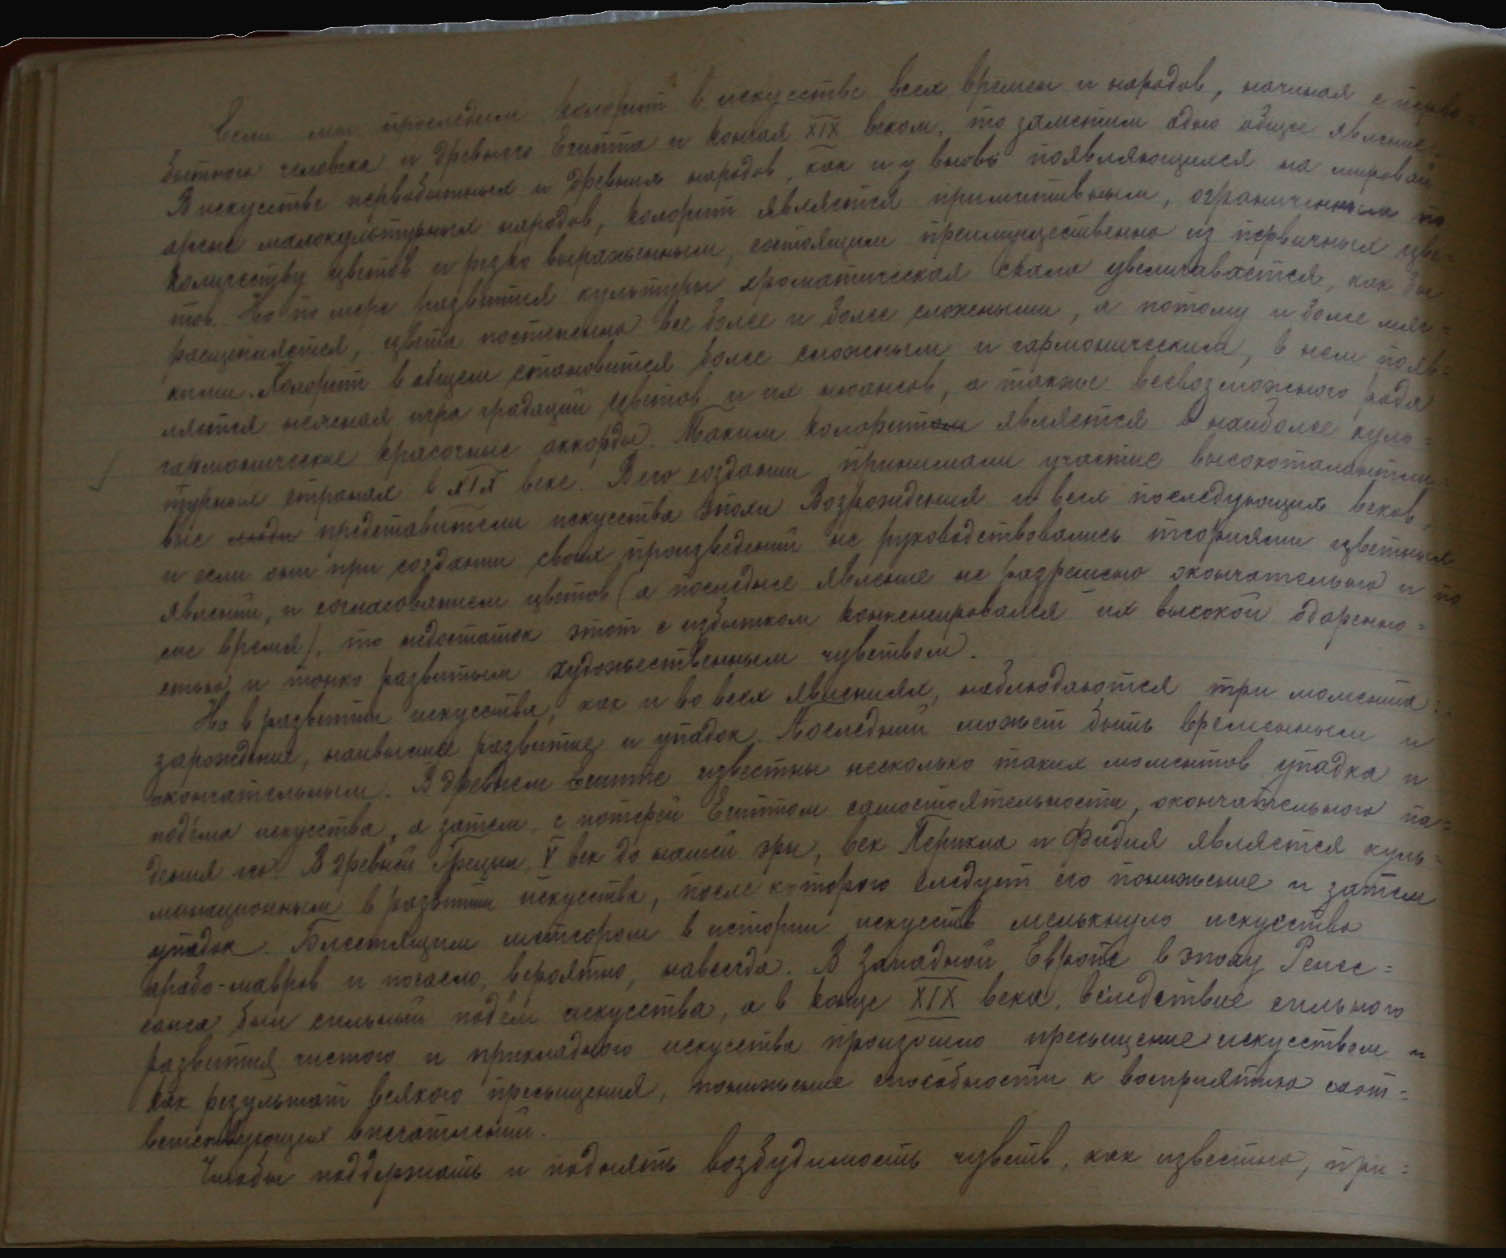 Если мы проследим колорит в искусстве всех времен и народов, начиная с перво=
бытного человека и древнего Египта и кончая XIX веком, то заметим одно общее явление.
В искусстве первобытных и древних народов, как и у вновь появляющихся на мировой
арене малокультурных народов, колорит является примитивным, ограниченным по
количеству цветов и резко выраженным, состоящим преимущественно из первичных цве=
тов. Но по мере развития культуры хроматическая скала увеличивается, как бы
расщепляется, цвета постепенно все более и более сложными, а потому и более мяг=
кими. Колорит в общем становится более сложным и гармоническим, в нем появ=
ляется нежная игра градаций цветов и их нюансов, а также всевозможного рода
гармонические красочные аккорды. Таким колоритом является в наиболее куль=
турных странах в XIX веке. В его создании принимали участие высокоталантли=
вые люди представители искусства эпохи Возрождения и всех последующих веков,
и если они при создании своих произведений не руководствовались теориями цветных
явлений, и согласованием цветов (а последнее явление не разрешено окончательно и по
сие время), то недостаток этот с избытком компенсировался их высокой одаренно=
стью и тонко развитым художественным чувством.
Но в развитии искусства, как и во всех явлениях, наблюдаются три момента:
зарождение, наивысшее развитие и упадок. Последний может быть временным и
окончательным. В древнем Египте известны несколько таких моментов упадка и
подъема искусства, а затем с потерей Египтом самостоятельности, окончательного па=
дения его. В древней Греции, V век до нашей эры, век Перикла и Фидия является куль=
минационным в развитии искусства, после которого следует его понижение и затем
упадок. Блестящим метеором в истории искусств мелькнуло искусство
арабо-мавров и погасло, вероятно, навсегда. В Западной Европе в эпоху Ренес=
санса был сильный подъем искусства, а в конце XIX века, вследствие сильного
развития чистого и прикладного искусства произошло пресыщение искусством и
как результат всякого пресыщения, понижение способности к восприятию соот=
ветствующих впечатлений.
Чтобы поддержать и поднять возбудимость чувств, как известно, при=